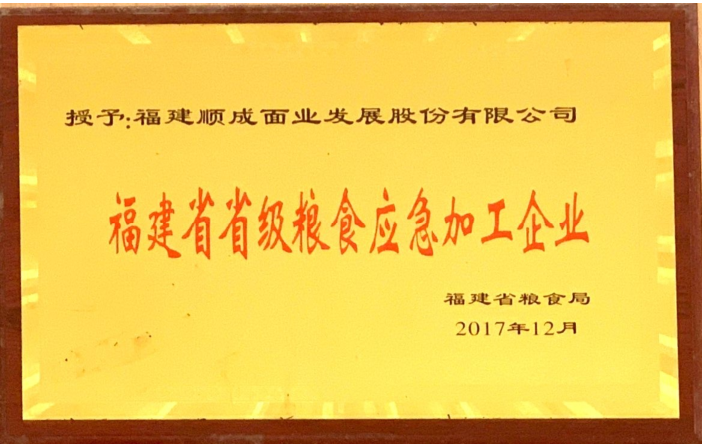 授予:福建顺成面业发展股份有限公司
福建省省级粮食应急加工企业
福建省粮食局
2017年12月